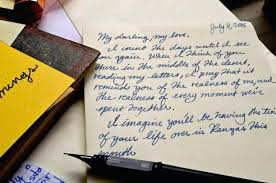 July 8, 2016
My darling, my love.
I count the days until I see
you again. When I think of you
there in the middle of the desert,
reading my letters, I pray that it
remind you of the realness of me, and
the realness of every moment we've
spent together.
I imagine you'll be having the time
of your life over in Kansas this
month